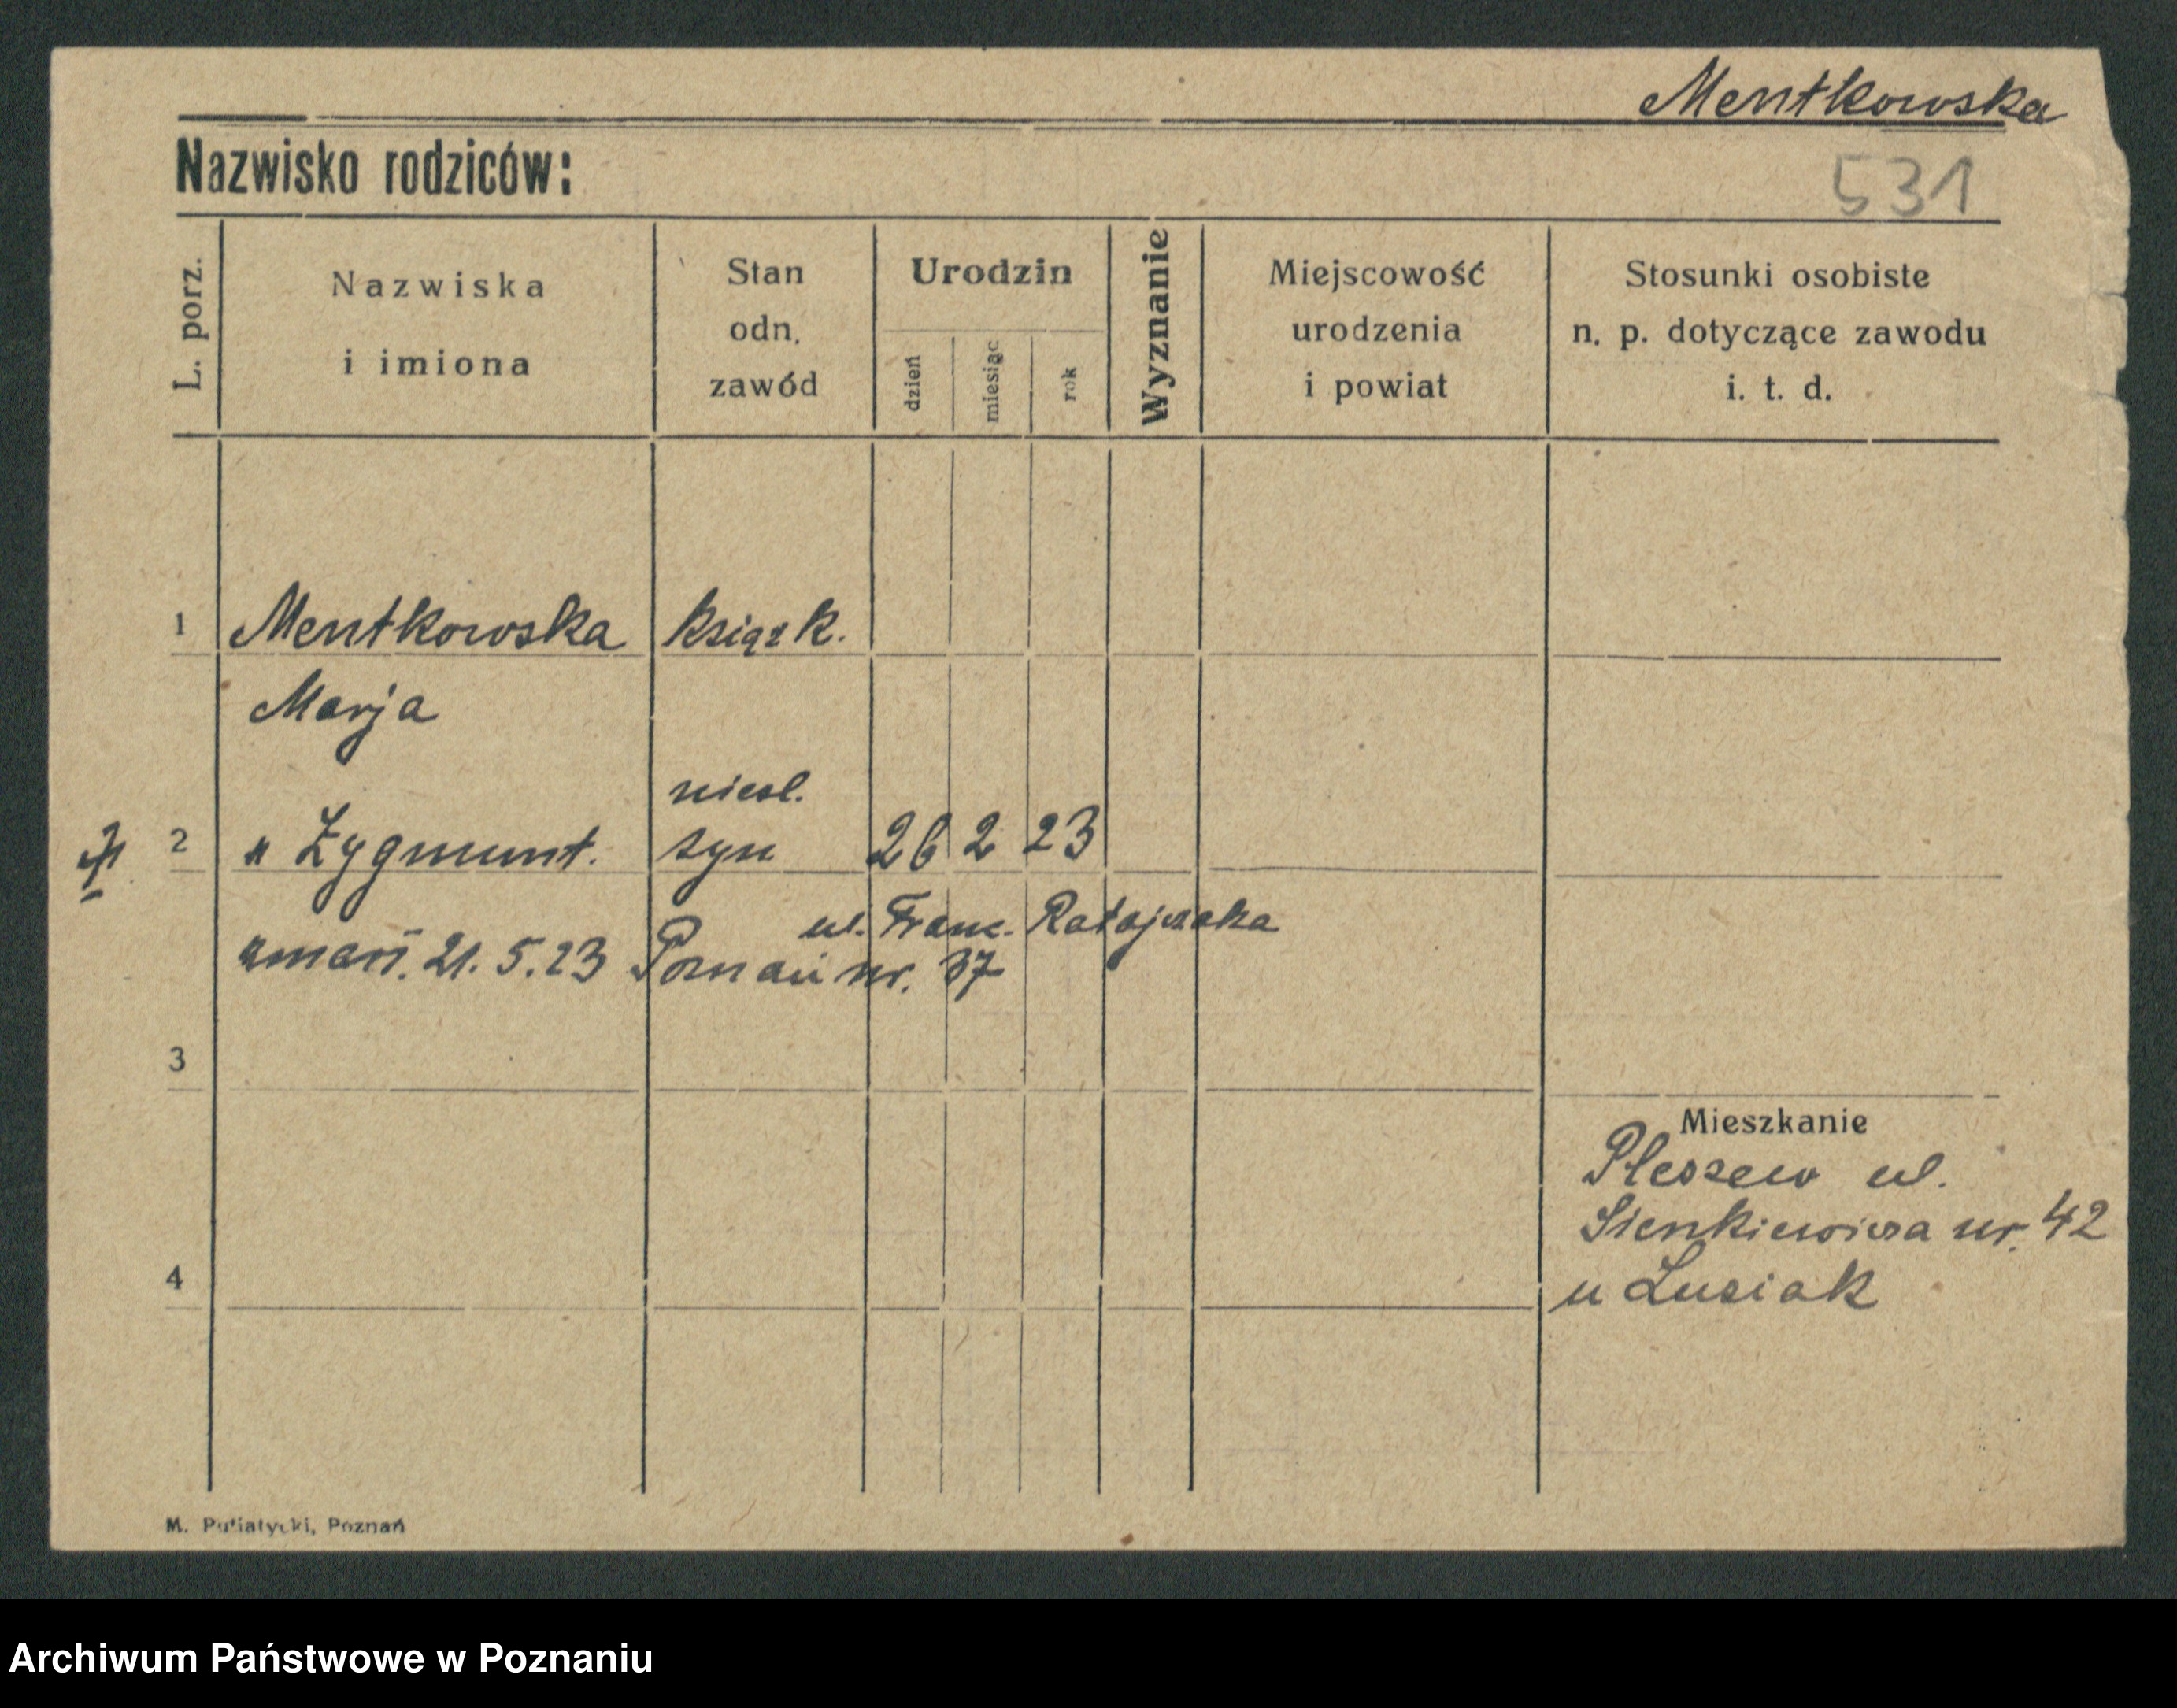 Mentkowska
Nazwisko rodziców:
531
L. porz.
Nazwiska
i imiona
Stan
odn.
zawód
Urodzin
dzień
miesiąc
rok
Wyznanie
Miejscowość
urodzenia
i powiat
Stosunki osobiste
n. p. dotyczące zawodu
i. t. d.
1 Mentkowska książk.
Marja
niesl.
2 " Zygmunt. syn 26 2 23
ul. Franc. Ratajczaka
zmarł. 21. 5. 23 Poznań nr. 37
3
Mieszkanie
Pleszew ul.
Sienkiewicza nr. 42
4
u Lusiak
M. Putiatycki, Poznań
Archiwum Państwowe w Poznaniu